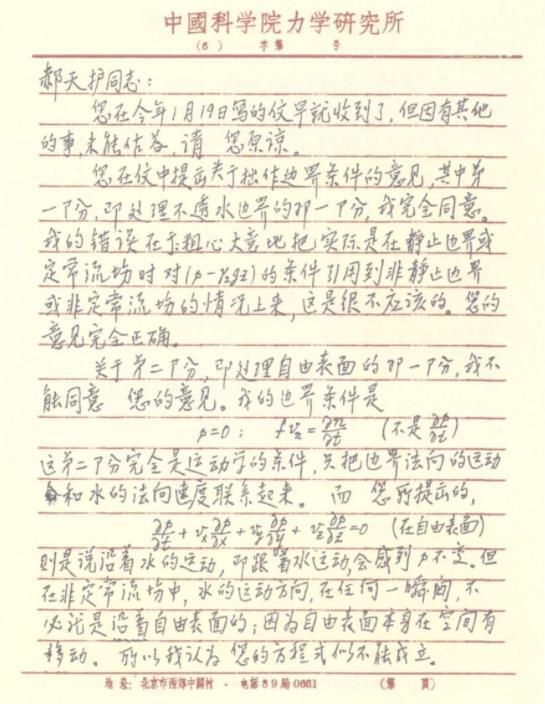 中國科学院力学研究所
(6) 字第 号
郝天护同志:
您在今年1月19日写的信早就收到了,但因有其他
的事,未能作答,请 您原谅。
您在信中提出关于拙作边界条件的意见,其中第
一卩分,即处理不透水边界的那一卩分,我完全同意。
我的错误在于粗心大意地把实际是在静止边界或
定常流场时对(p-γ₂gz)的条件引用到非静止边界
或非定常流场的情况上来,这是很不应该的。您的
意见完全正确。
关于第二卩分,即处理自由表面的那一卩分,我不
能同意 您的意见。我的边界条件是
p=0; fvₙ=∂n/∂t (不是∂p/∂t)
这第二卩分完全是运动学的条件,只把边界法向的运动
和水的法向速度联系起来。 而 您所提出的,
∂p/∂t+vₓ∂p/∂x+vᵧ∂p/∂y+v_z∂p/∂z=0 (在自由表面)
则是说沿着水的运动,即跟着水运动,会感到p不变。但
在非定常流场中,水的运动方向,在任何一瞬间,不
必讬是沿着自由表面的;因为自由表面本身在空间有
移动。所以我认为 您的方程式似不能成立。
地址:北京市西郊中關村 · 电話89局0661 (第 頁)